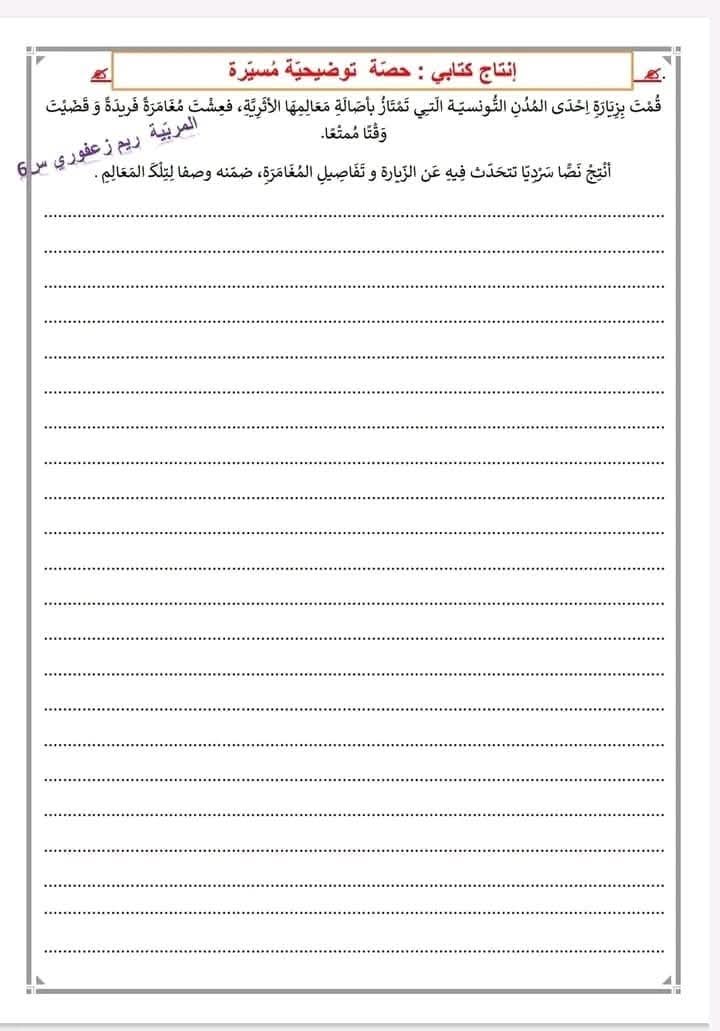 إنتاج كتابي : حصّة توضيحيّة مُسيّرة
قُمْتَ بِزِيَارَةِ إِحْدَى المُدُنِ التُّونسيّة الّتِي تَمْتَازُ بأصَالَةِ مَعَالِمِهَا الأثَرِيَّةِ، فعِشْتَ مُغَامَرَةً فَرِيدَةً وَ قَضَيْتَ
وَقْتًا مُمتعًا.
المربّية ريم زعفوري س 6
أَنْتِجْ نَصًّا سَرْدِيًّا تتحَدّث فِيهِ عَنْ الزّيارة و تَفَاصِيلِ المُغَامَرَةِ، ضمّنه وصفا لِتِلْكَ المَعَالِمِ .